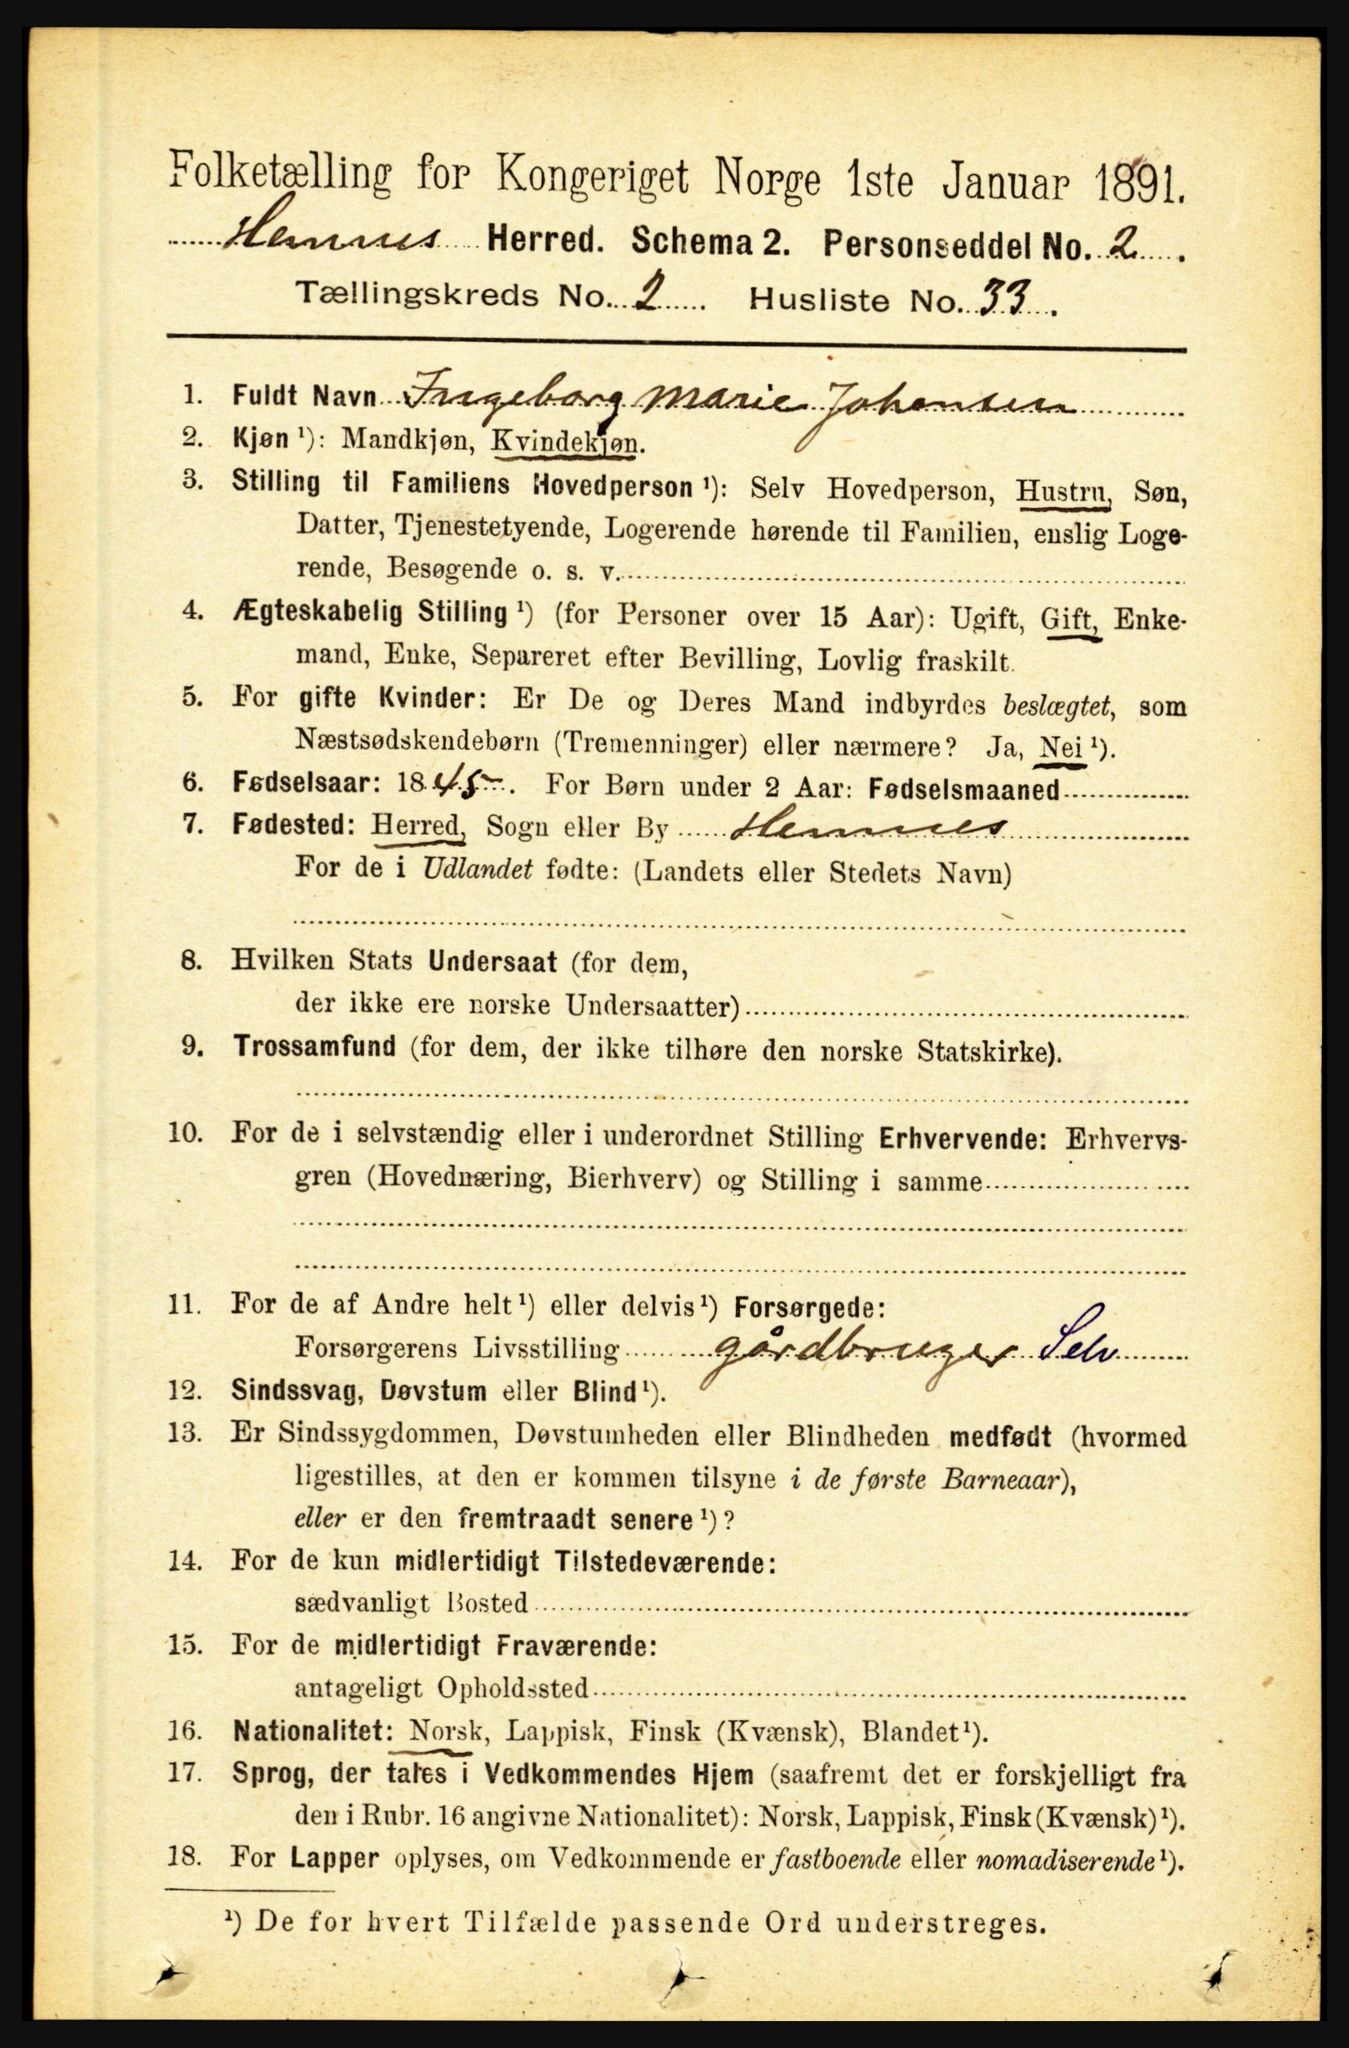 Folketælling for Kongeriget Norge 1ste Januar 1891.
Hemnes Herred. Schema 2. Personseddel No. 2.
Tællingskreds No. 2. Husliste No. 33.
1. Fuldt Navn Ingeborg Marie Johansen
2. Kjøn ¹): Mandkjøn, Kvindekjøn.
3. Stilling til Familiens Hovedperson ¹): Selv Hovedperson, Hustru, Søn,
Datter, Tjenestetyende, Logerende hørende til Familien, enslig Loge-
rende, Besøgende o. s. v.
4. Ægteskabelig Stilling ¹) (for Personer over 15 Aar): Ugift, Gift, Enke-
mand, Enke, Separeret efter Bevilling, Lovlig fraskilt.
5. For gifte Kvinder: Er De og Deres Mand indbyrdes beslægtet, som
Næstsødskendebørn (Tremenninger) eller nærmere? Ja, Nei ¹).
6. Fødselsaar: 1845. For Børn under 2 Aar: Fødselsmaaned
7. Fødested: Herred, Sogn eller By Hemnes
For de i Udlandet fødte: (Landets eller Stedets Navn)
8. Hvilken Stats Undersaat (for dem,
der ikke ere norske Undersaatter)
9. Trossamfund (for dem, der ikke tilhøre den norske Statskirke).
10. For de i selvstændig eller i underordnet Stilling Erhvervende: Erhvervs-
gren (Hovednæring, Bierhverv) og Stilling i samme
11. For de af Andre helt ¹) eller delvis ¹) Forsørgede:
Forsørgerens Livsstilling gårdbruger Selv
12. Sindssvag, Døvstum eller Blind ¹).
13. Er Sindssygdommen, Døvstumheden eller Blindheden medfødt (hvormed
ligestilles, at den er kommen tilsyne i de første Barneaar),
eller er den fremtraadt senere ¹)?
14. For de kun midlertidigt Tilstedeværende:
sædvanligt Bosted
15. For de midlertidigt Fraværende:
antageligt Opholdssted
16. Nationalitet: Norsk, Lappisk, Finsk (Kvænsk), Blandet ¹).
17. Sprog, der tales i Vedkommendes Hjem (saafremt det er forskjelligt fra
den i Rubr. 16 angivne Nationalitet): Norsk, Lappisk, Finsk (Kvænsk) ¹).
18. For Lapper oplyses, om Vedkommende er fastboende eller nomadiserende ¹).
¹) De for hvert Tilfælde passende Ord understreges.